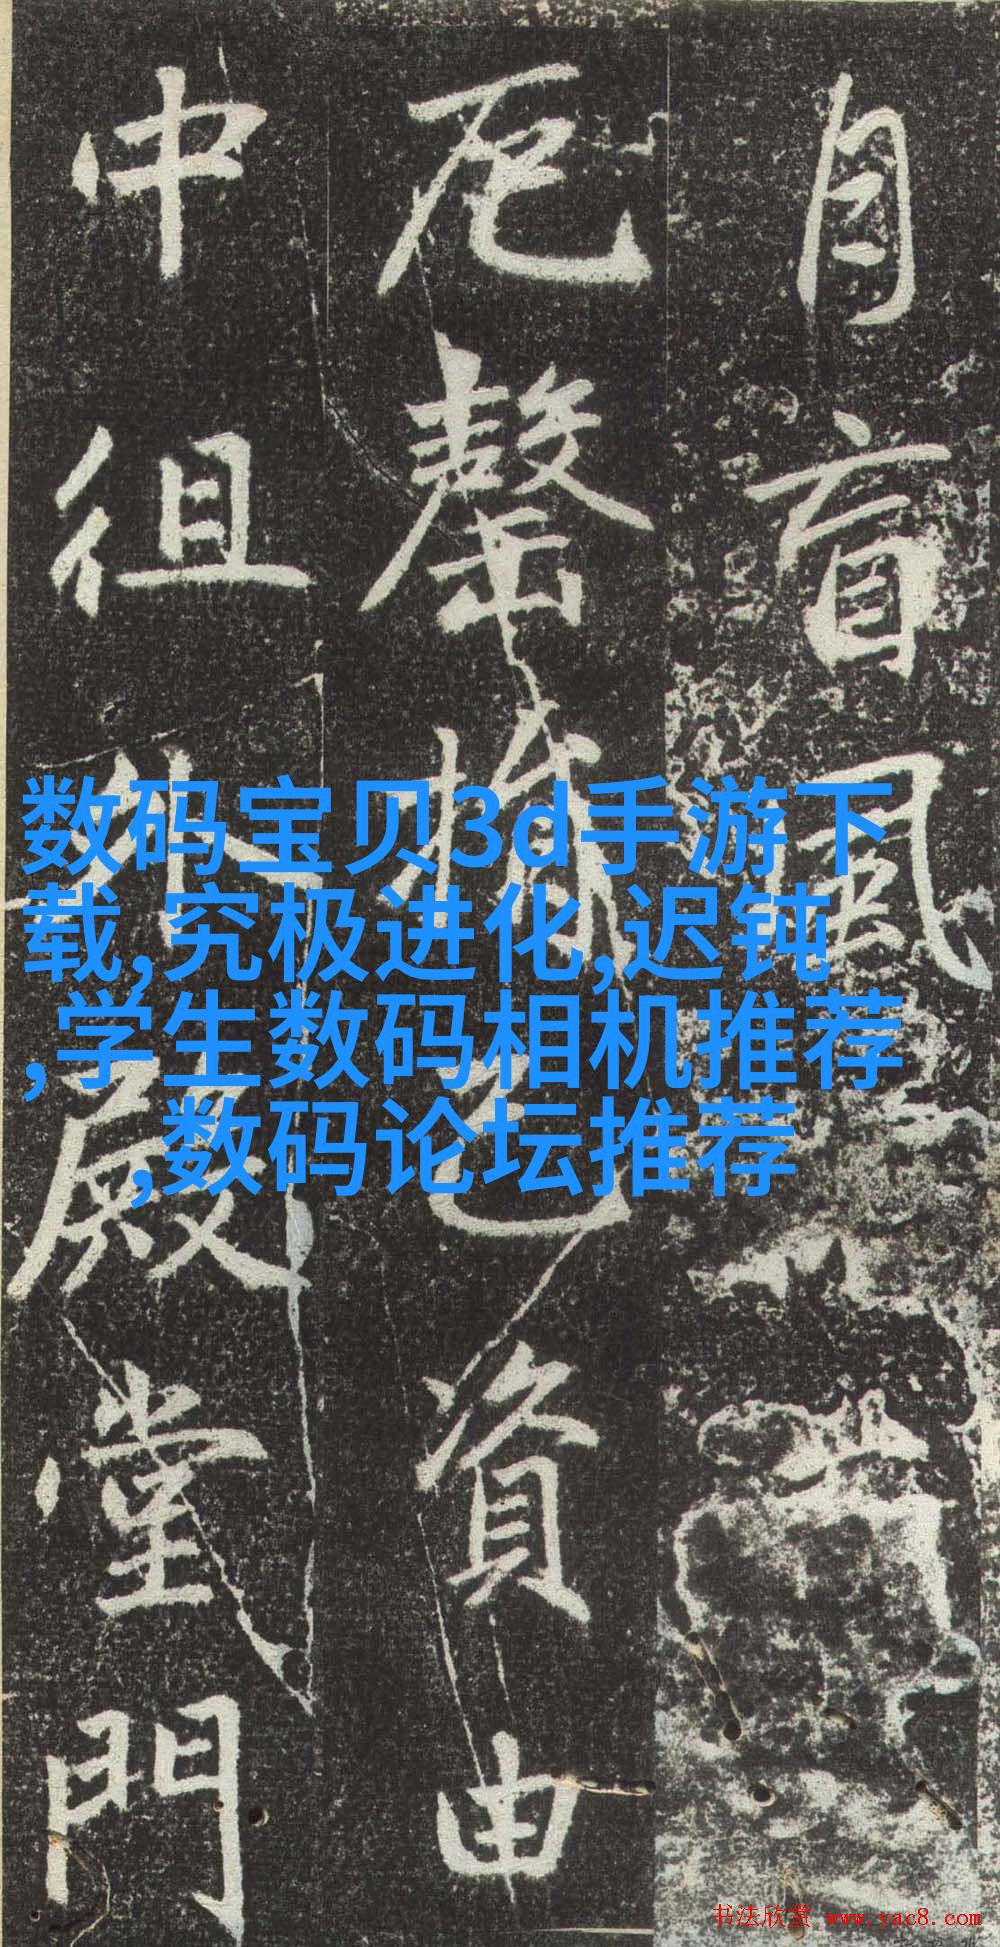 自盲風
厄罄資由
中徂殿堂門
数码宝贝3d手游下
载,究极进化,迟钝
,学生数码相机推荐
,数码论坛推荐
书法欣赏 www.yac8.com